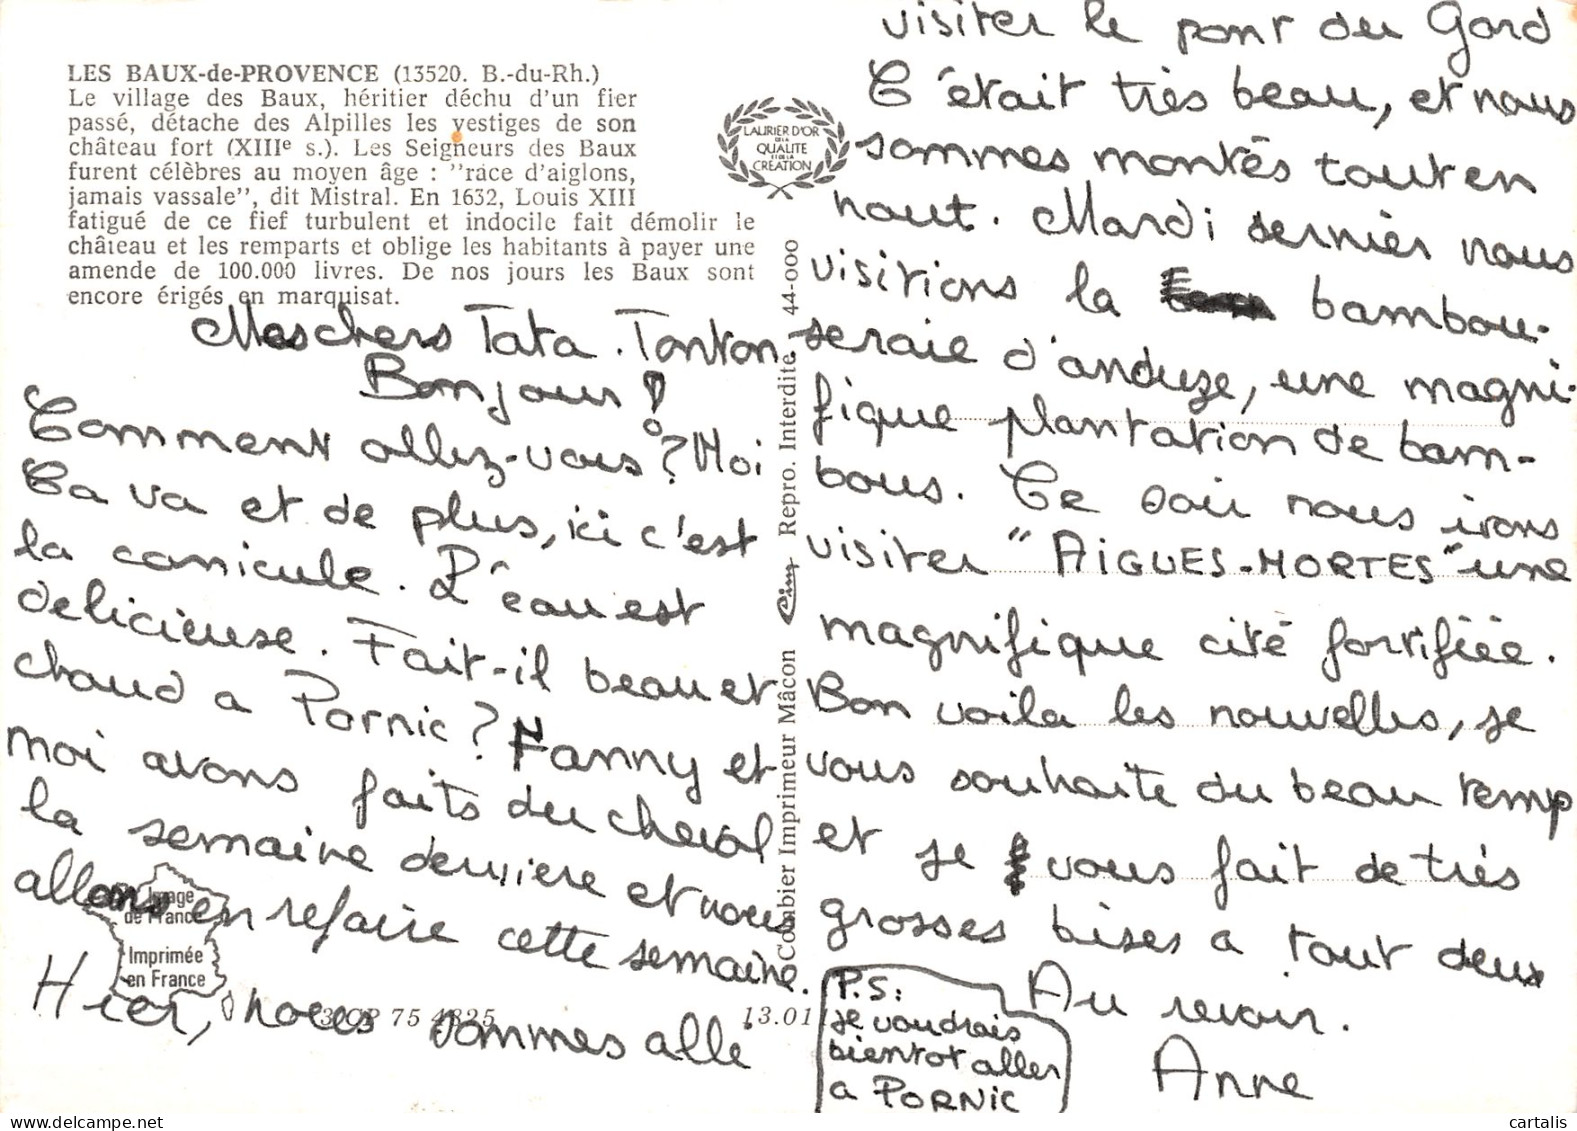 LES BAUX-de-PROVENCE (13520. B.-du-Rh.)
Le village des Baux, héritier déchu d'un fier
passé, détache des Alpilles les vestiges de son
château fort (XIIIe s.). Les Seigneurs des Baux
furent célèbres au moyen âge : "race d'aiglons,
jamais vassale", dit Mistral. En 1632, Louis XIII
fatigué de ce fief turbulent et indocile fait démolir le
château et les remparts et oblige les habitants à payer une
amende de 100.000 livres. De nos jours les Baux sont
encore érigés en marquisat.
Mes chers Tata. Tonton.
Bonjour !
Comment allez-vous ? Moi
Ca va et de plus, ici c'est
la canicule. L'eau est
delicieuse. Fait-il beau et
chaud a Pornic ? Fanny et
moi avons faits du cheval
la semaine derniere et nous
allons en refaire cette semaine.
Hier, nous sommes allé
Image
de France
Imprimée
en France
75 4825
13.01
LAURIER D'OR
DE LA
QUALITE
ET DE LA
CREATION
Combier Imprimeur Mâcon Cim Repro. Interdite 44-000
visiter le pont du Gard
C'était très beau, et nous
sommes montés tout en
haut. Mardi dernier nous
visitions la bambou-
seraie d'anduze, une magni-
fique plantation de bam-
bous. Ce soir nous irons
visiter "AIGUES-MORTES" une
magnifique cité fortifiée.
Bon voila les nouvelles, je
vous souhaite du beau temp
et je vous fait de très
grosses bises a tout deux
Au revoir.
Anne
P.S:
je voudrais
bientot aller
a PORNIC
cartalis.com